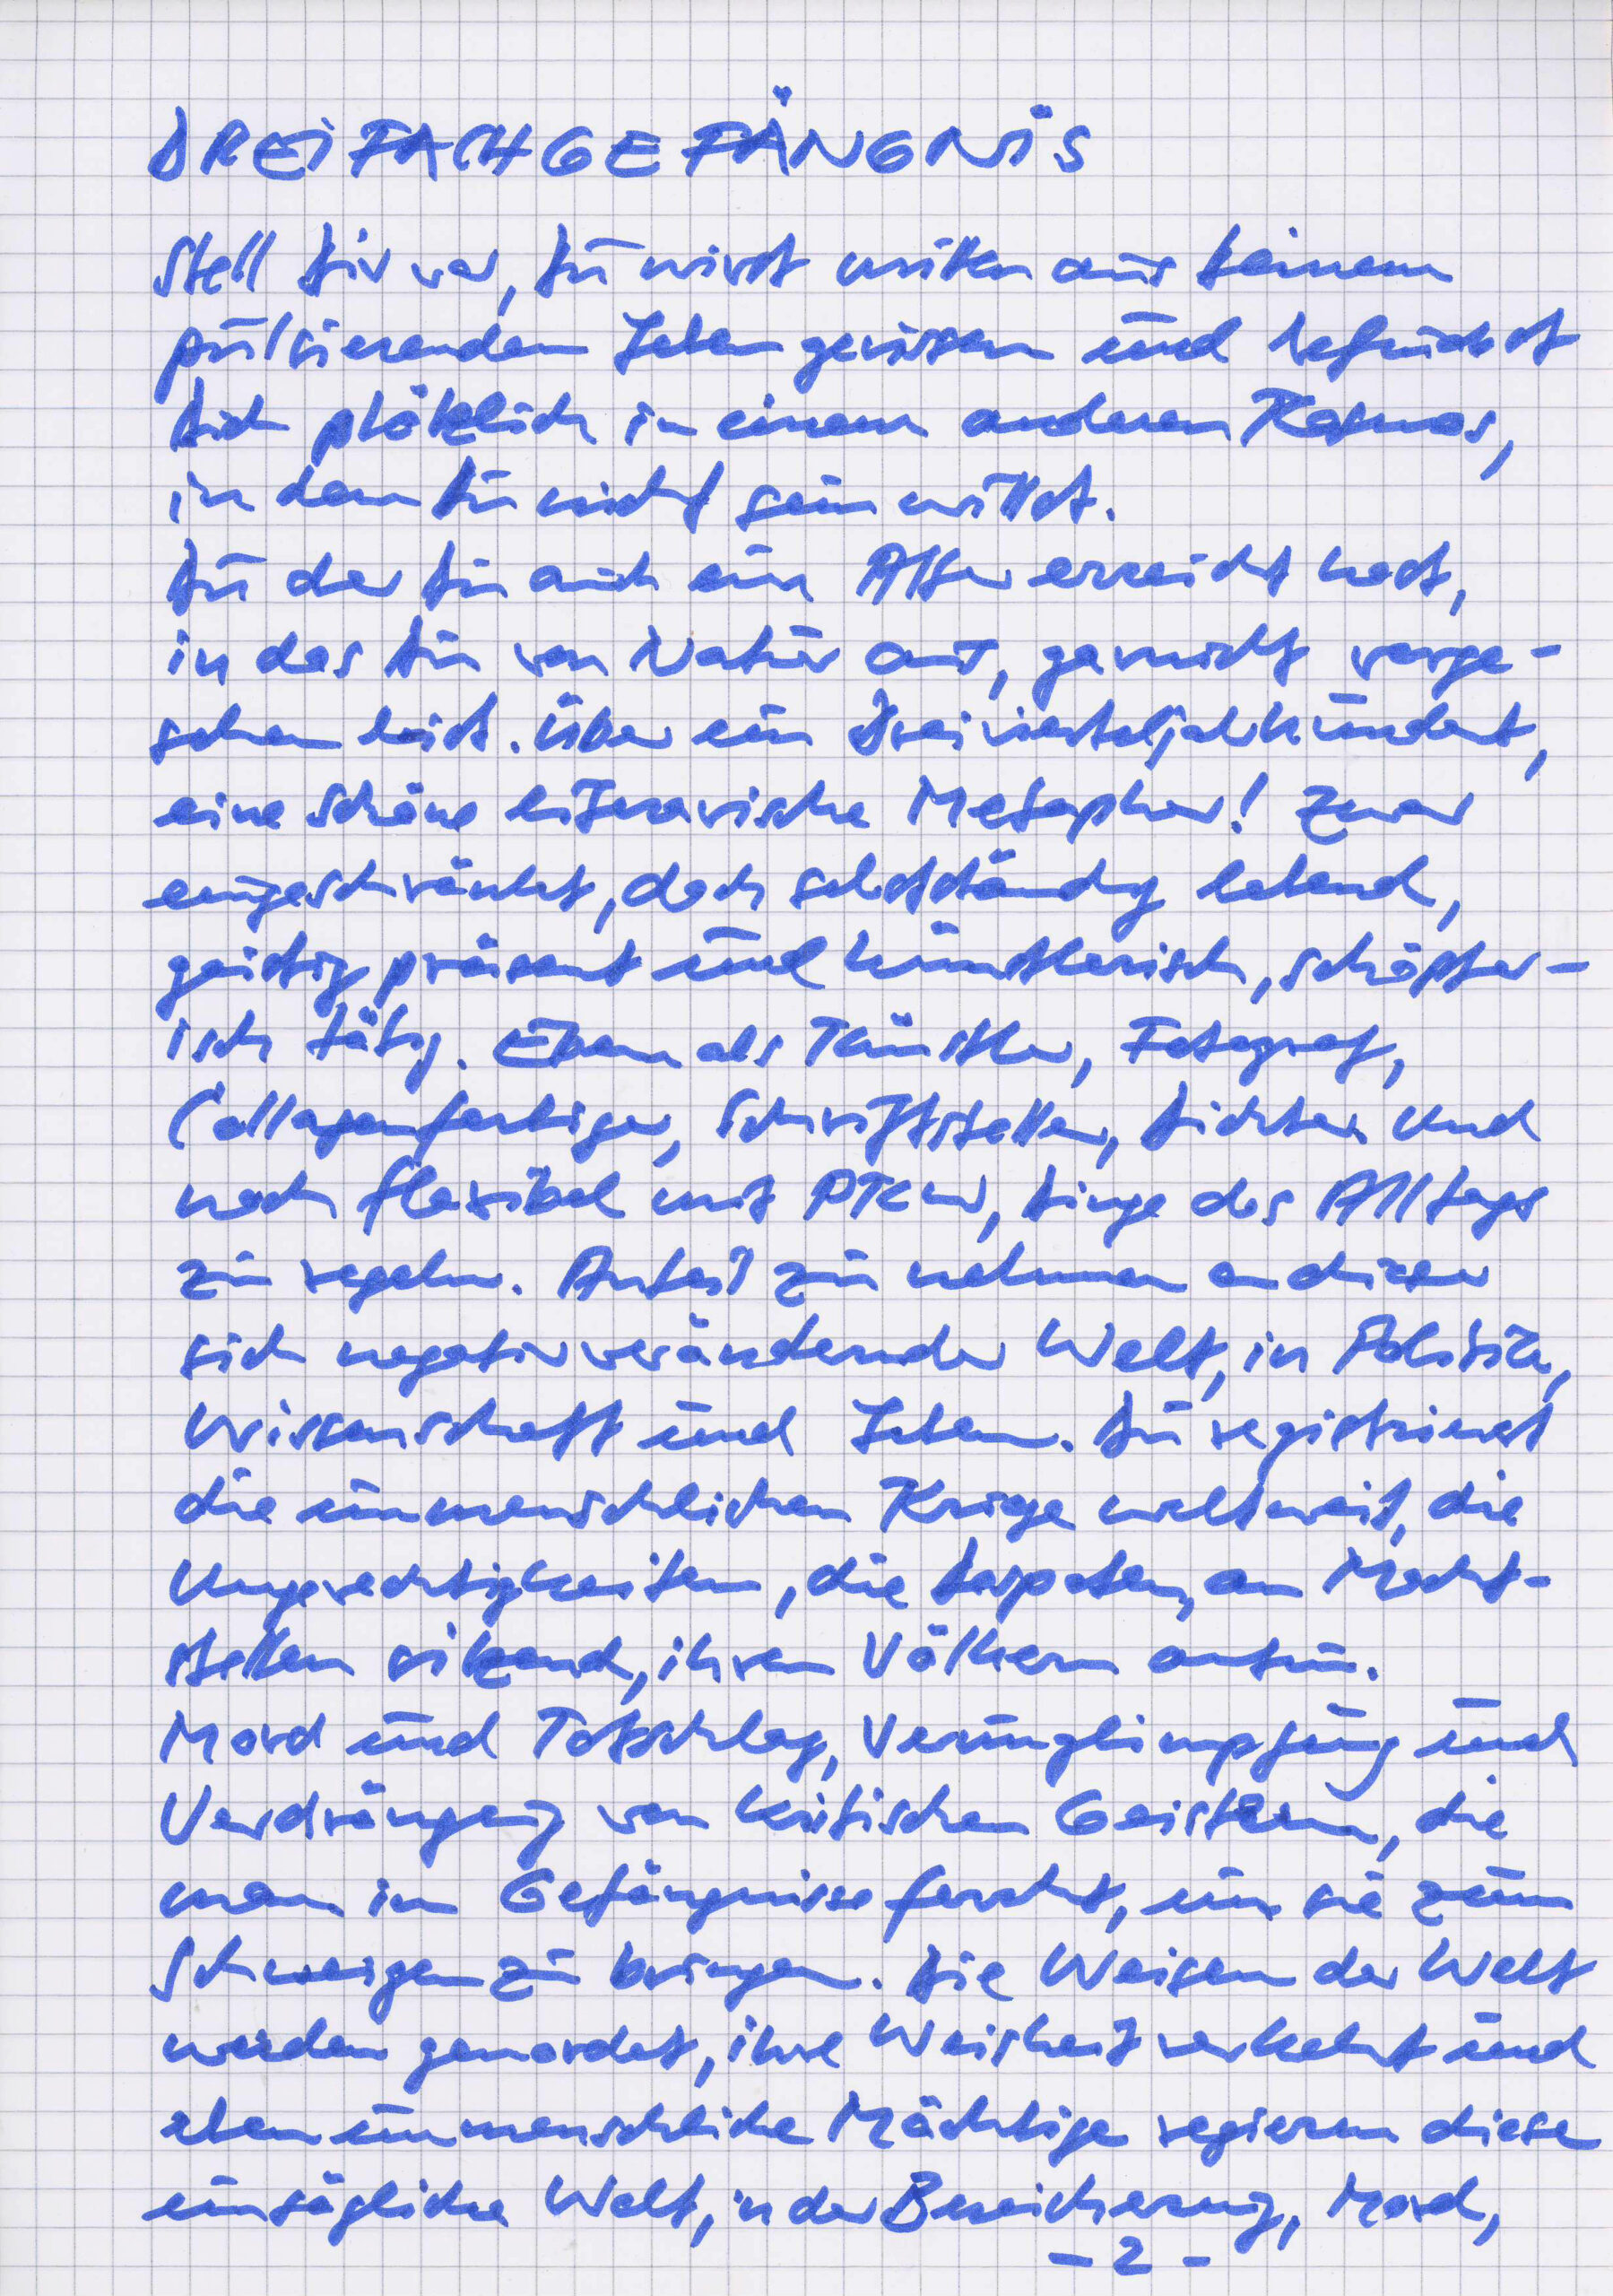 DREIFACHGEFÄNGNIS
Stell Dir vor, Du wirst mitten aus Deinem
pulsierenden Leben gerissen und befindest
Dich plötzlich in einem anderen Kosmos,
in dem Du nicht sein willst.
Du der Du auch ein Alter erreicht hast,
in das Du von Natur aus, gar nicht vorge-
sehen bist. Über ein Dreivierteljahrhundert,
eine schöne literarische Metapher! Zwar
eingeschränkt, doch selbstständig lebend,
geistig präsent und künstlerisch, schöpfer-
isch tätig. Eben als Künstler, Fotograf,
Collagenfertiger, Schriftsteller, Dichter und
noch flexibel mit PKW, Dinge des Alltags
zu regeln. Anteil zu nehmen an dieser
sich negativ verändernder Welt, in Politik,
Wissenschaft und Leben. Du registrierst
die unmenschlichen Kriege weltweit, die
Ungerechtigkeiten, die Despoten, an Macht-
stellen sitzend, ihren Völkern antun.
Mord und Totschlag, Verunglimpfung und
Verdrängung von kritischen Geistern, die
man in Gefängnisse fercht, um sie zum
Schweigen zu bringen. Die Weisen der Welt
werden gemordet, ihre Weisheit verkehrt und
eben unmenschliche Mächtige regieren diese
unsägliche Welt, in der Bereicherung, Mord,
- 2 -